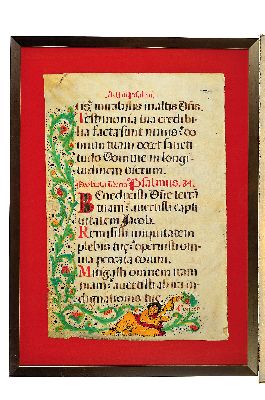 us: mirabilis in altis Dñs.
Testimonia tua credibi
lia facta sunt nimis: do
mum tuam decet sancti
tudo Domine in longi
tudinem dierum.
Psalmus. 84.
Benedixisti Dñe terrã
tuam: avertisti capti
vitatem Jacob.
Remisisti iniquitatem
plebis tue: operuisti om
nia peccata eorum.
Mitigasti omnem iram
tuam: avertisti ab ira in
dignationis tue.